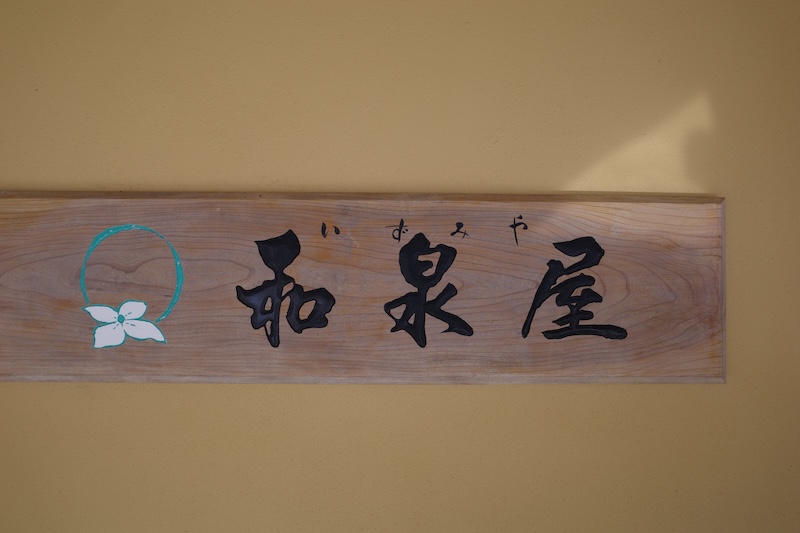 いずみや
和泉屋